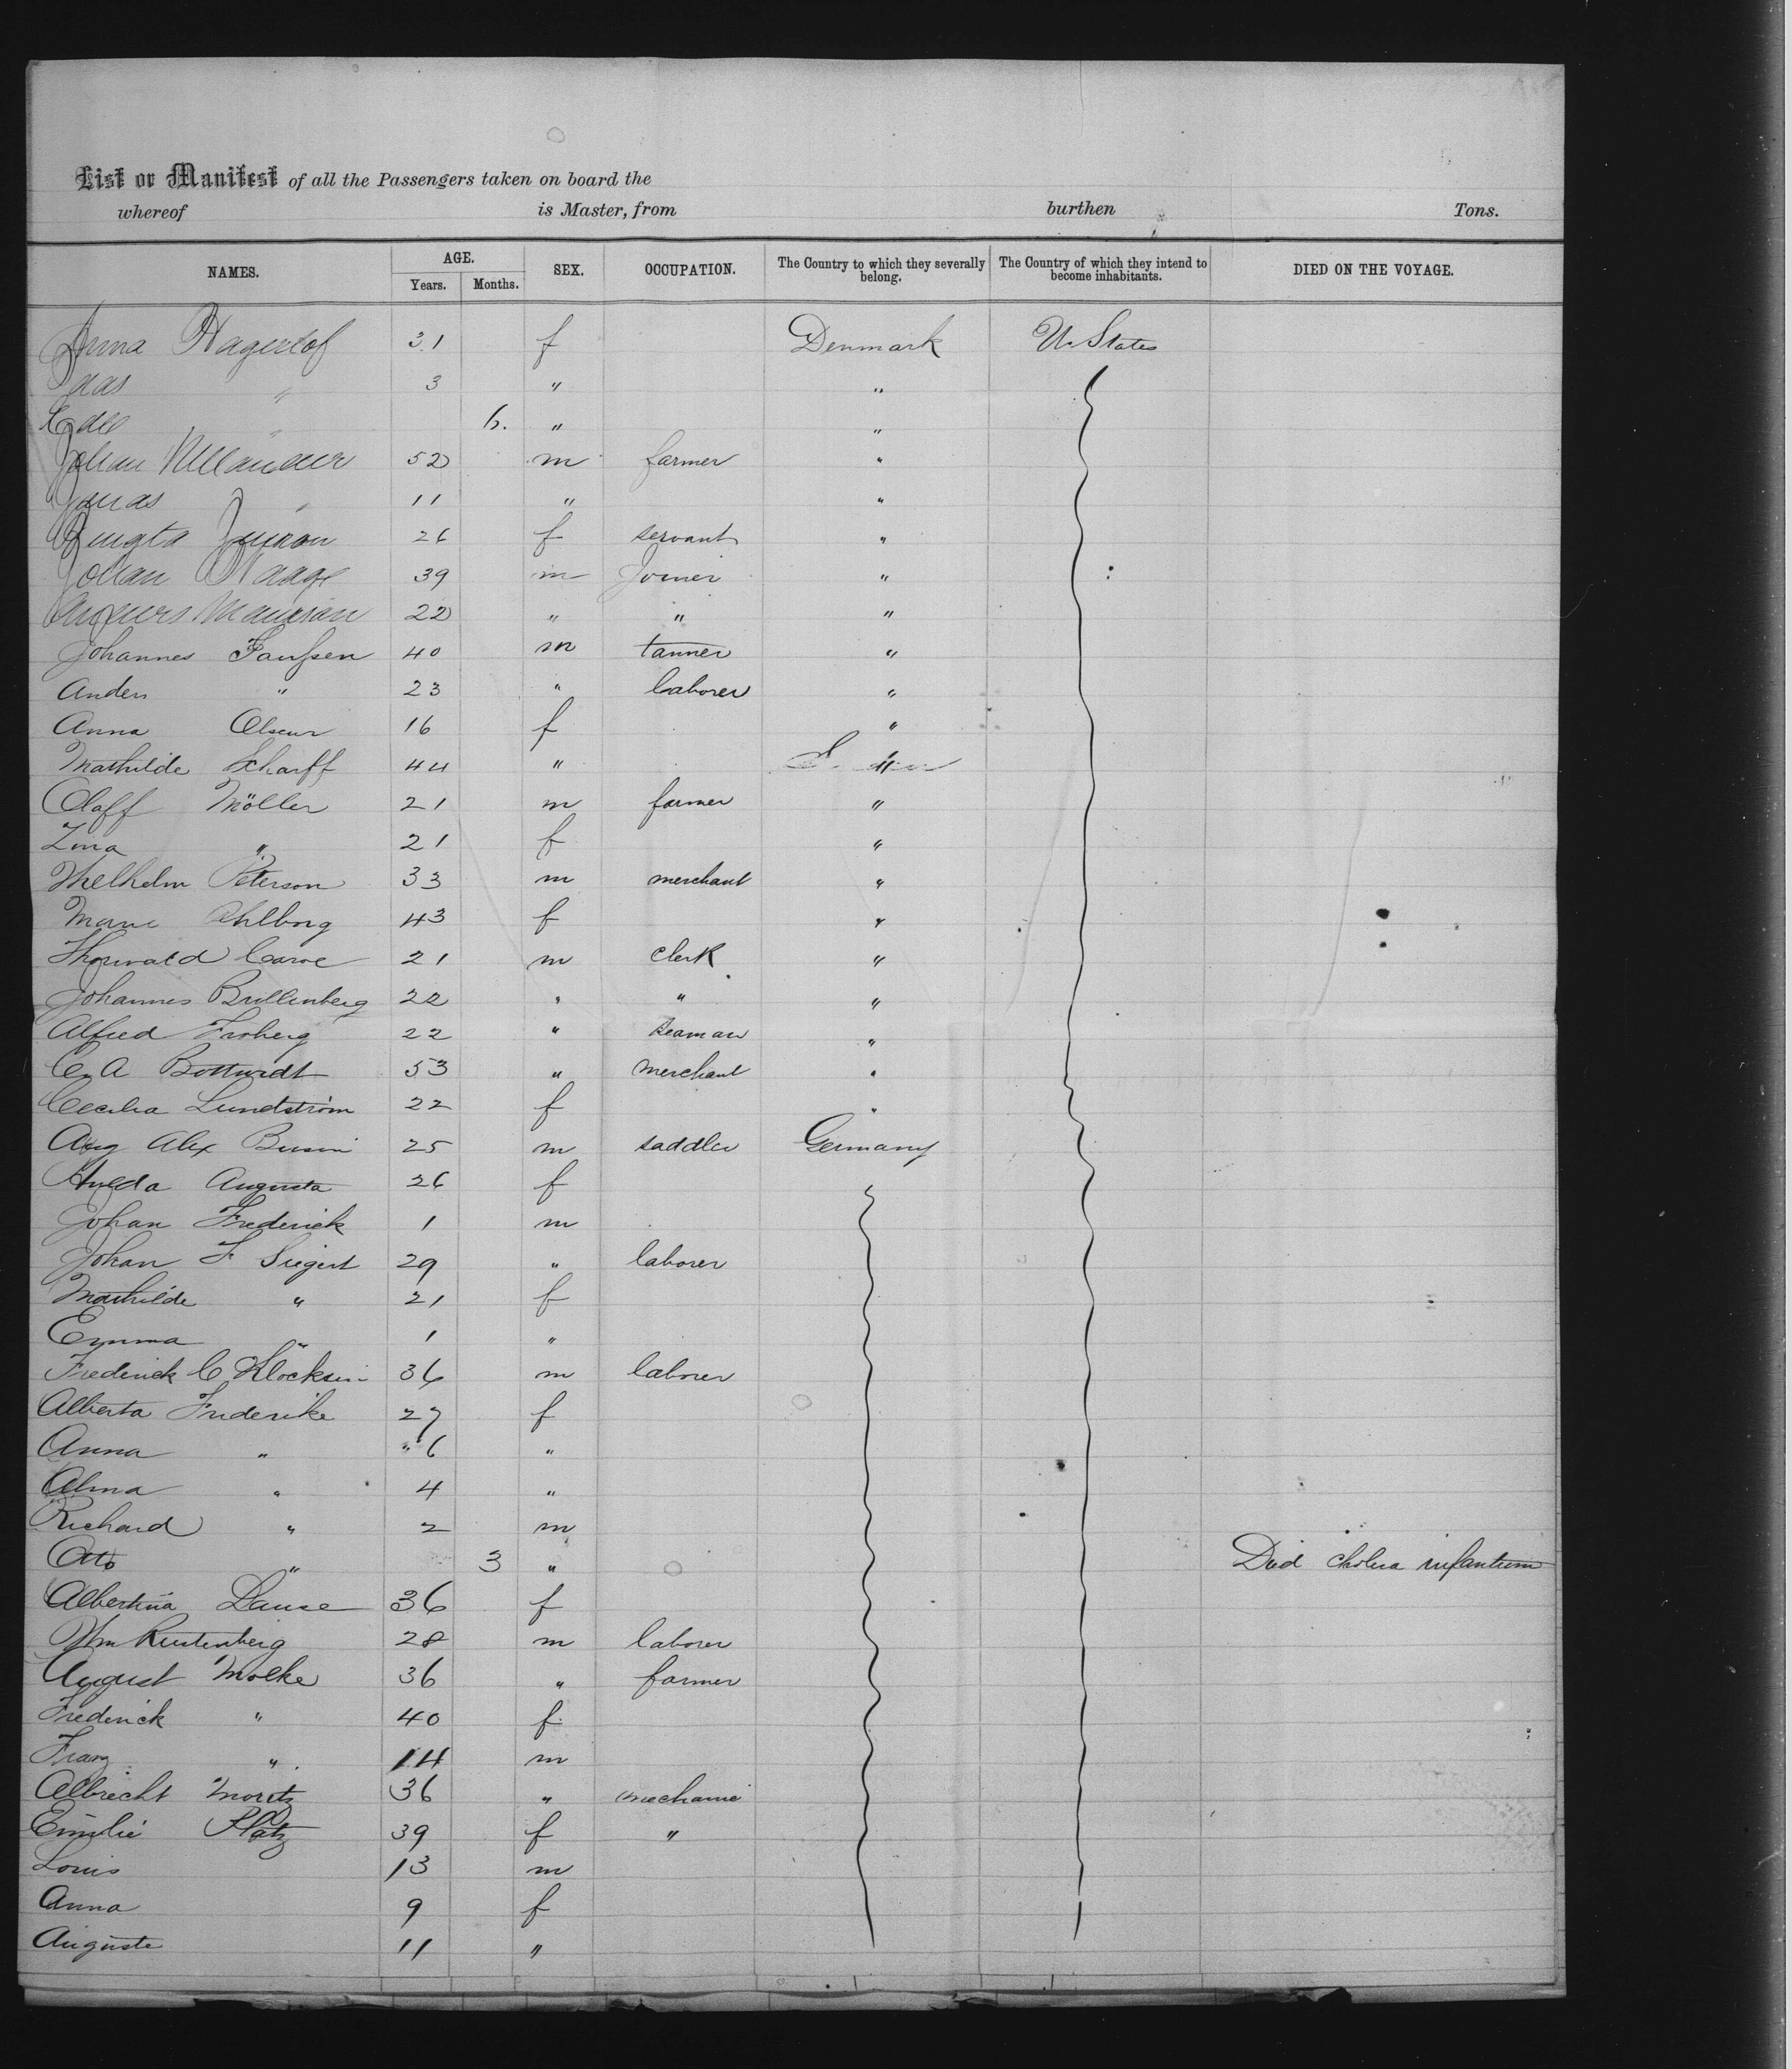 List or Manifest of all the Passengers taken on board the
whereof is Master, from burthen Tons.
NAMES. AGE. Years. Months. SEX. OCCUPATION. The Country to which they severally belong. The Country of which they intend to become inhabitants. DIED ON THE VOYAGE.
Anna 31 f Denmark U. States
3 " "
6. " "
Johan 52 m farmer "
Jonas " 11 " "
26 f servant "
Johan 39 m Joiner "
22 " " "
Johannes 40 m tanner "
Anders " 23 " laborer "
Anna 16 f "
Mathilde Scharff 44 " "
Olaff Möller 21 m farmer "
Lina " 21 f "
Peterson 33 m merchant "
Ahlborg 43 f "
Thorwald Caroe 21 m clerk "
Johannes Brillenberg 22 " " "
Alfred Froberg 22 " seaman "
C. A 53 " merchant "
Cecilia Lundström 22 f "
Aug Alex 25 m saddler Germany
Augusta 26 f
Johan Frederick 1 m
Johan F Siegert 29 " laborer
Mathilde " 21 f
Emma " 1 "
Frederick C 36 m laborer
Alberta Friderike 27 f
Anna " 6 "
Alma " 4 "
Richard " 2 m
Otto " 3 " Died cholera infantum
Albertina 36 f
Wm Rustenberg 28 m laborer
August Molke 36 " farmer
Frederick " 40 f
Franz " 14 m
Albrecht Moritz 36 " mechanic
Emilie Platz 39 f "
Louis 13 m
Anna 9 f
Auguste 11 "